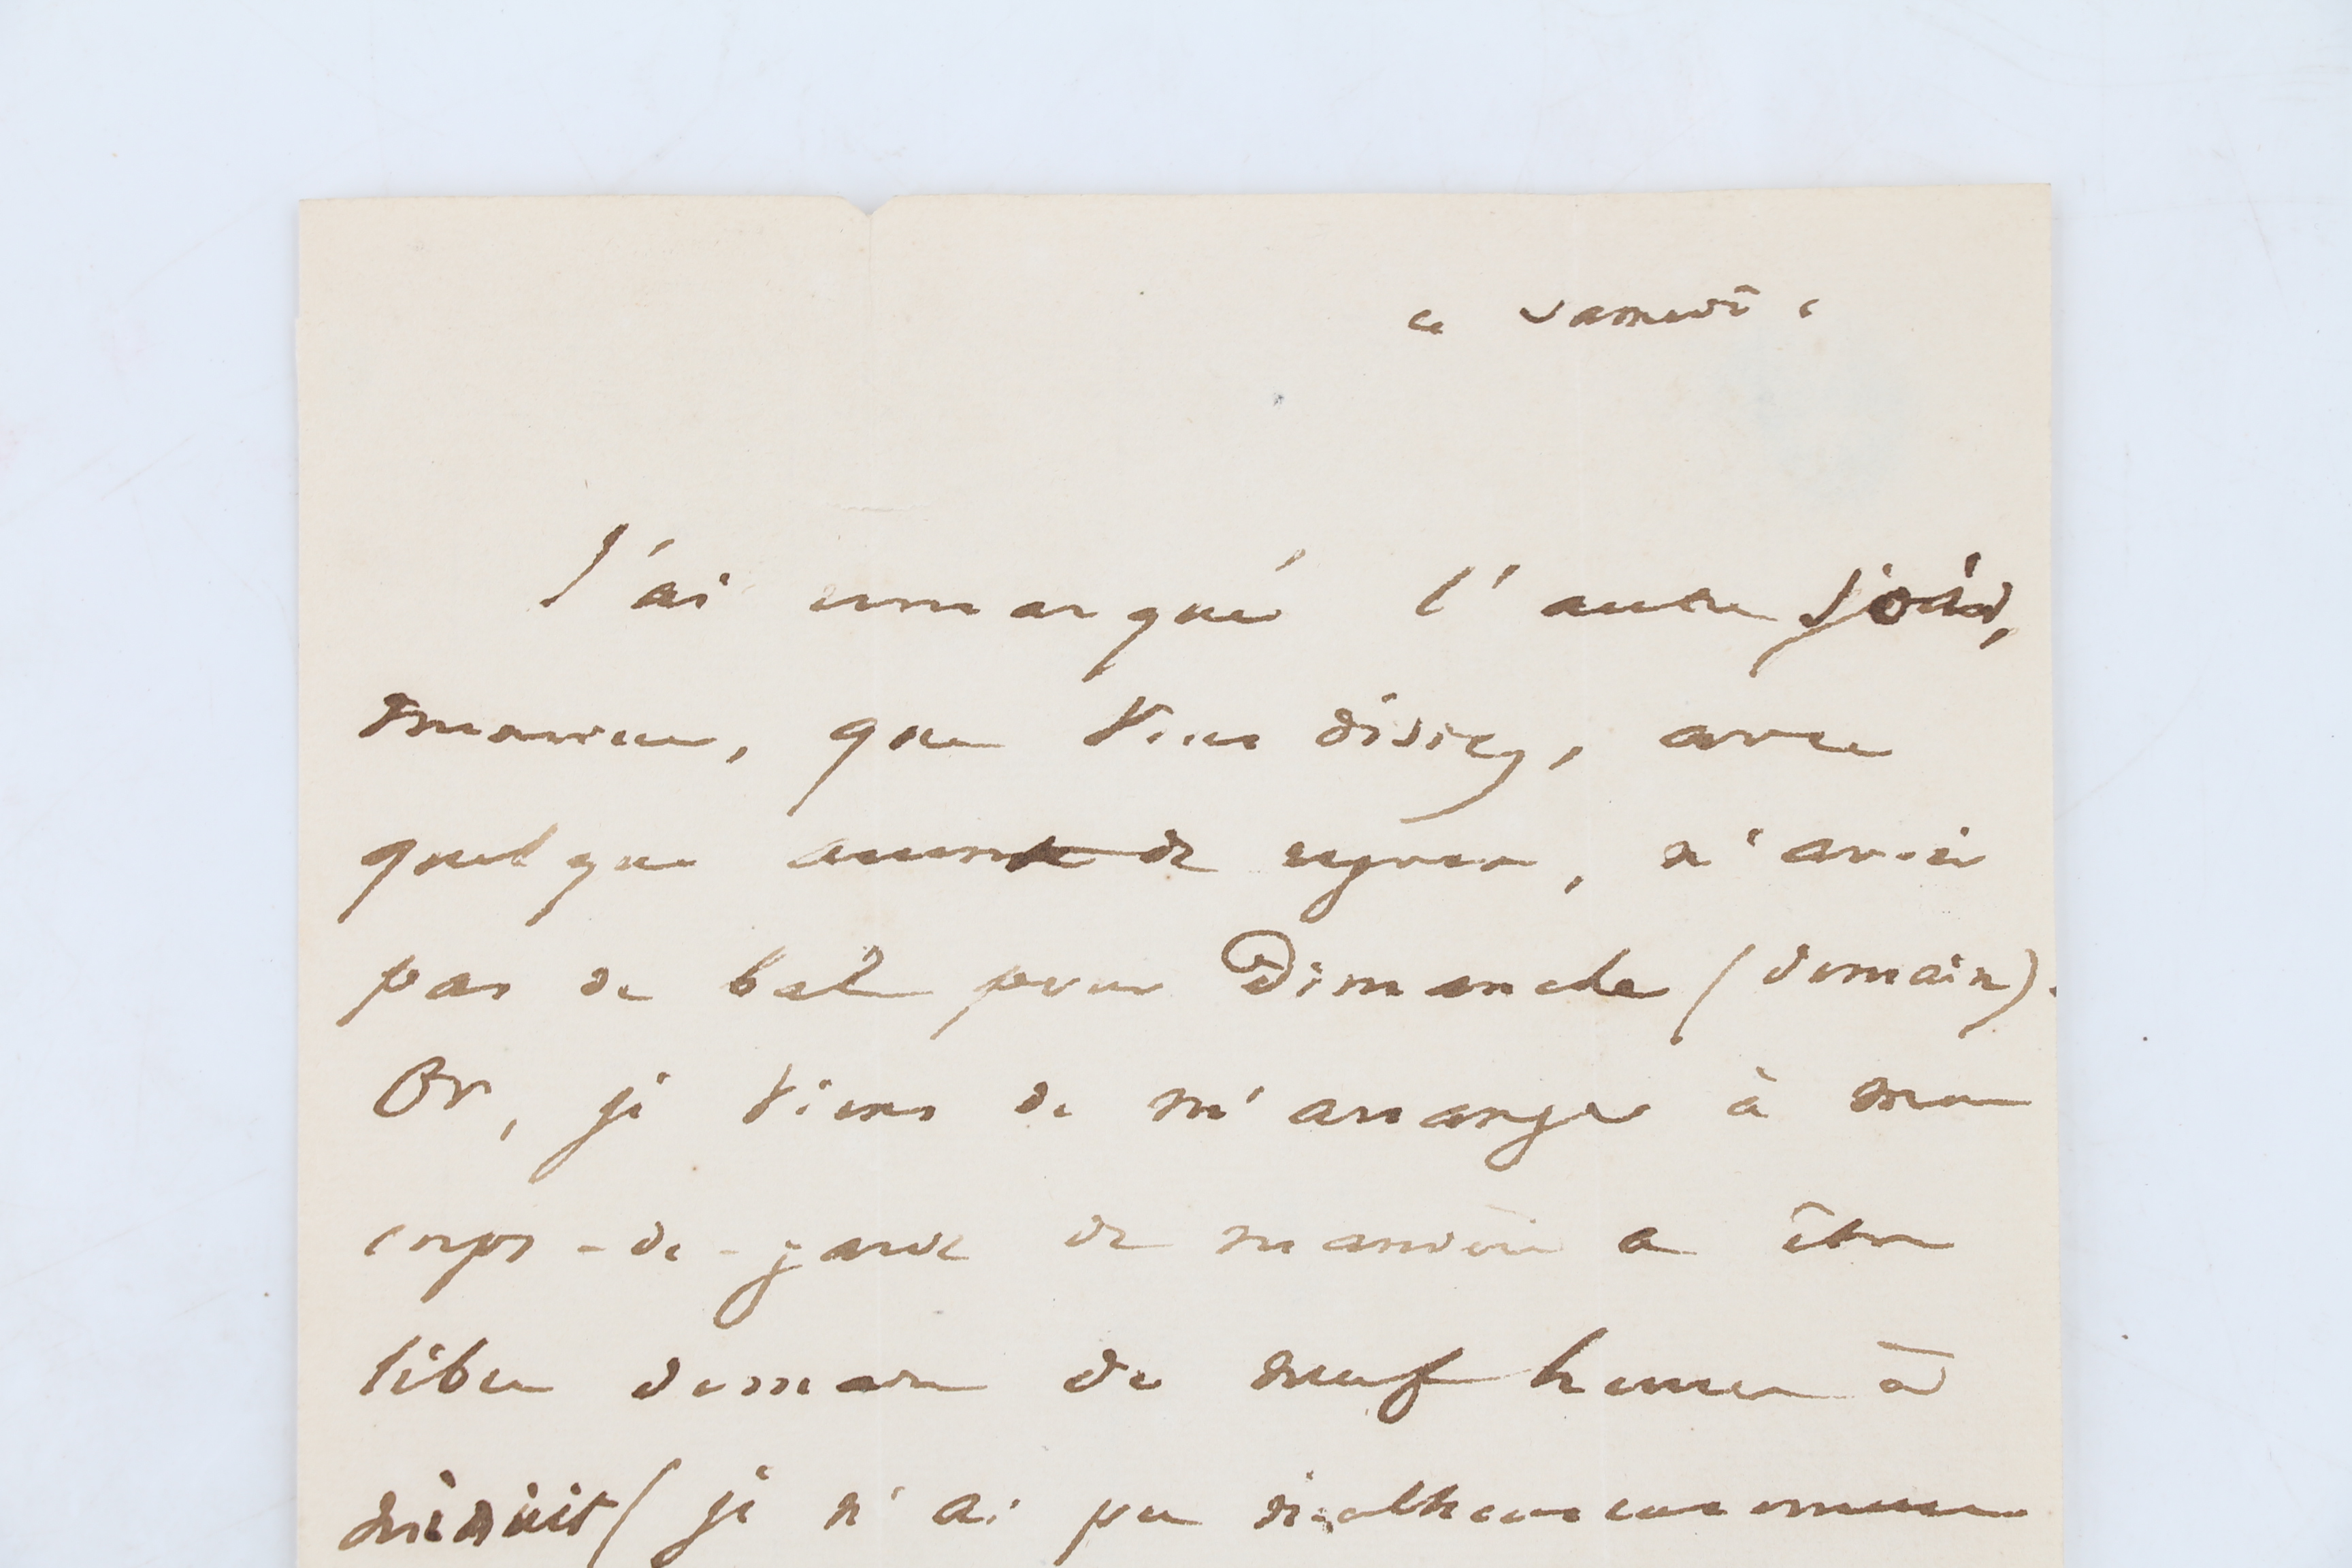 ce samedi
J'ai remarqué l'autre jour,
madame, que vous disiez, avec
quelque accent de regret, n'avoir
pas de bal pour Dimanche (demain).
Or, je viens de m'arranger à mon
corps-de-garde de manière à être
libre demain de neuf heures à
minuit (je n'ai pu malheureusement